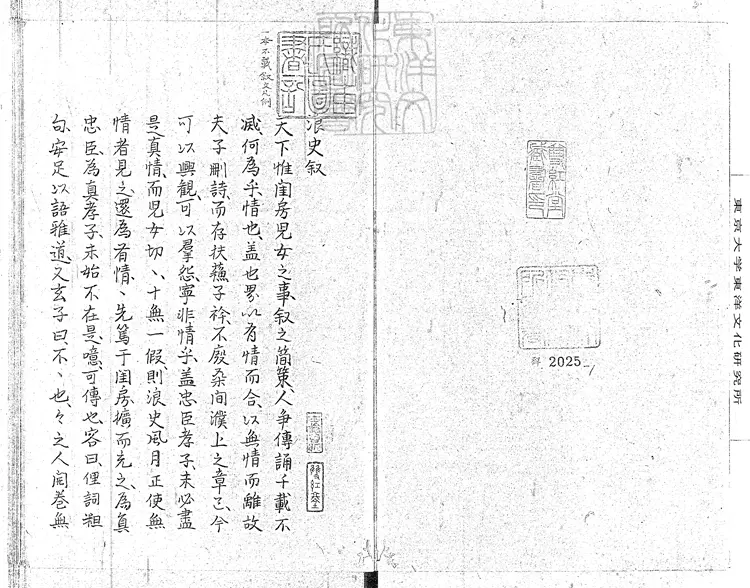 東京大学東洋文化研究所
雙紅堂
2025
一本不載叙文凡例
浪史叙
天下惟闺房児女之事、叙之簡策、人争傳誦千載不
滅、何為乎、情也、盖世界以有情而合、以無情而離、故
夫子刪詩、而存扶蘓子衿、不廢桑間濮上之章、已、今
可以興觀、可以羣怨、寧非情乎、盖忠臣孝子、未必盡
是真情、而児女切丶、十無一假、則浪史風月、正使無
情者見之、還為有情、丶先篤于闺房、擴而充之、為真
忠臣、為真孝子、未始不在是、噫、可傳也、客曰、俚詞粗
句、安足以語雅道、又玄子曰、不丶也、々之人、闭卷無